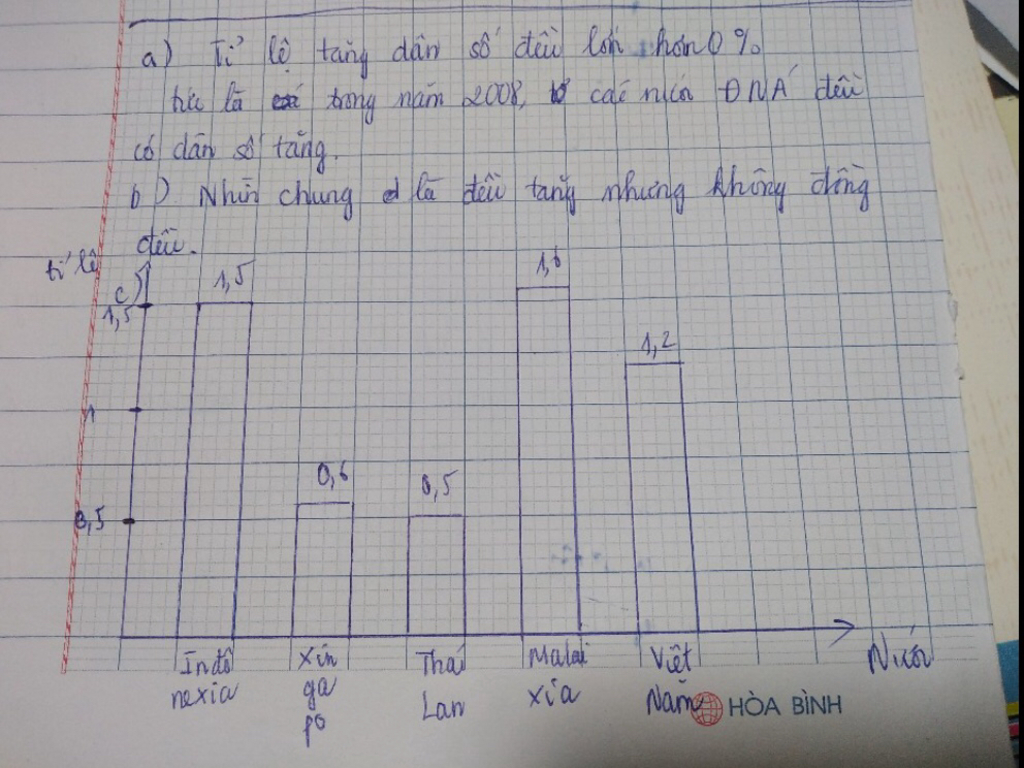 a) Tỉ lệ tăng dân số đều lớn hơn 0 %
tức là trong năm 2008, các nước ĐNÁ đều
có dân số tăng.
b) Nhìn chung là đều tăng nhưng không đồng
đều.
tỉ lệ
c)
1,5
1
0,5
1,5
0,6
0,5
1,6
1,2
Inđô
nexia
Xin
ga
po
Thái
Lan
Malai
xia
Việt
Nam
Nước
HÒA BÌNH